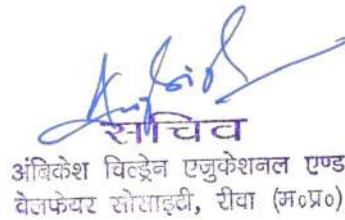 सचिव
अंबिकेश चिल्ड्रेन एजुकेशनल एण्ड
वेलफेयर सोसाइटी, रीवा (म०प्र०)